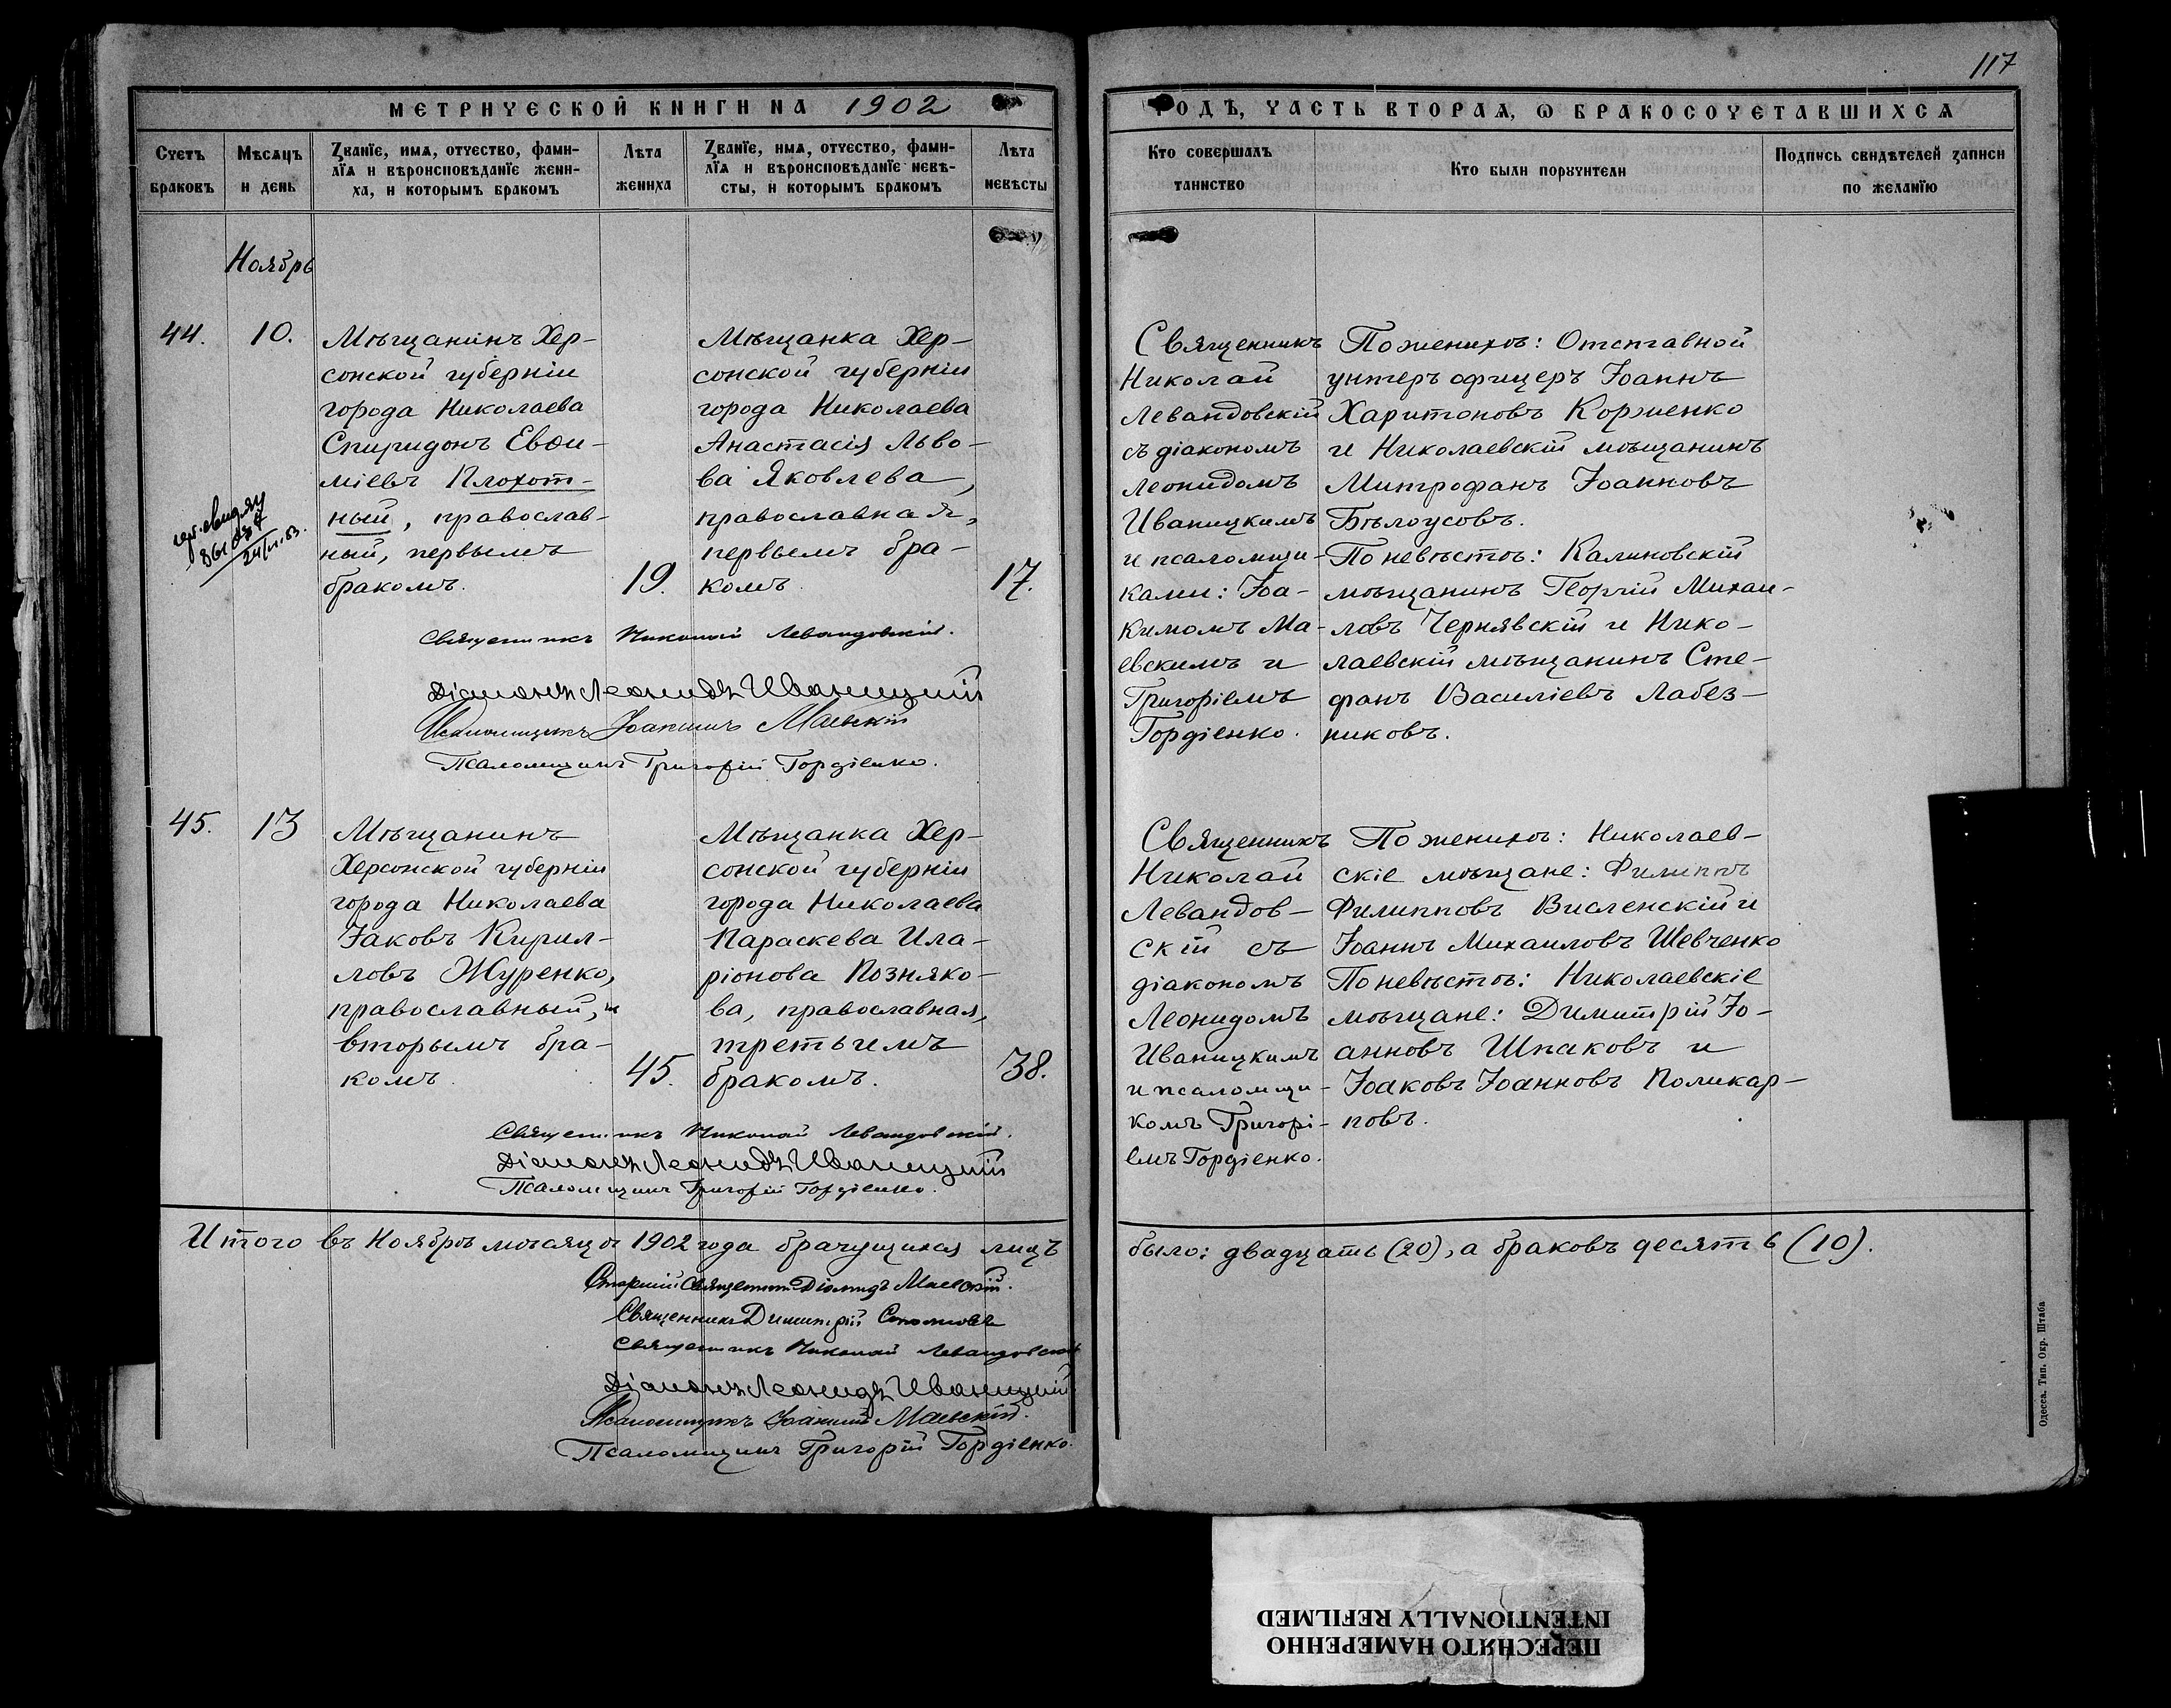 117
МЕТРИЧЕСКОЙ КНИГИ НА 1902
ГОДѢ, ЧАСТЬ ВТОРАѦ, Ѡ БРАКОСОЧЕТАВШИХСѦ
Счетъ браковъ
Мѣсѧцъ и день
Званїе, имѧ, отчество, фами-
лїѧ и вѣроисповѣданїе жени-
ха, и которымъ бракомъ
Лѣта жениха
Званїе, имѧ, отчество, фами-
лїѧ и вѣроисповѣданїе невѣ-
сты, и которымъ бракомъ
Лѣта невѣсты
Кто совершалъ таинство
Кто были поручители
Подпись свидѣтелей записи по желанїю
Ноябрь
44.
10.
Мѣщанинъ Хер-
сонской губерніи
города Николаева
Спиридонъ Евѳи-
міевъ Плохот-
ный, православ-
ный, первымъ
бракомъ.
19.
Мѣщанка Хер-
сонской губерніи
города Николаева
Анастасія Льво-
ва Яковлева,
православная,
первымъ бра-
комъ
17.
Священникъ
Николай
Левандовскій
съ діакономъ
Леонидомъ
Иваницкимъ
и псаломщи-
ками: Іоа-
кимомъ Ма-
евскимъ и
Григоріемъ
Гордіенко.
По женихѣ: Отставной
унтеръ офицеръ Іоаннъ
Харитоновъ Корженко
и Николаевскій мѣщанинъ
Митрофанъ Іоанновъ
Бѣлоусовъ.
По невѣстѣ: Калиновскій
мѣщанинъ Георгій Михаи-
ловъ Чернявскій и Нико-
лаевскій мѣщанинъ Сте-
фанъ Василіевъ Лабез-
никовъ.
Священникъ Николай Левандовскій.
Діаконъ Леонидъ Иваницкій
Псаломщикъ Іоакимъ Маевскій
Псаломщикъ Григорій Гордіенко.
45.
13
Мѣщанинъ
Херсонской губерніи
города Николаева
Іаковъ Кирил-
ловъ Журенко,
православный,
вторымъ бра-
комъ.
45.
Мѣщанка Хер-
сонской губерніи
города Николаева
Параскева Ила-
ріонова Позняко-
ва, православная,
третьимъ
бракомъ.
38.
Священникъ
Николай
Левандов-
скій съ
діакономъ
Леонидомъ
Иваницкимъ
и псаломщи-
комъ Григорі-
емъ Гордіенко.
По женихѣ: Николаев-
скіе мѣщане: Филиппъ
Филипповъ Висленскій и
Іоаннъ Михаиловъ Шевченко
По невѣстѣ: Николаевскіе
мѣщане: Димитрій Іо-
анновъ Шпаковъ и
Іоаковъ Іоанновъ Поликар-
повъ.
Священникъ Николай Левандовскій.
Діаконъ Леонидъ Иваницкій
Псаломщикъ Григорій Гордіенко.
Итого въ Ноябрѣ мѣсяцѣ 1902 года брачущихся лицъ было: двадцать (20), а браковъ десять (10).
Старшій Священникъ Діомидъ Маевскій.
Священникъ Димитрій
Священникъ Николай Левандовскій
Діаконъ Леонидъ Иваницкій
Псаломщикъ Іоакимъ Маевскій.
Псаломщикъ Григорій Гордіенко.
Одесса. Тип. Окр. Штаба
ПЕРЕСНЯТО НАМЕРЕННО
INTENTIONALLY REFILMED